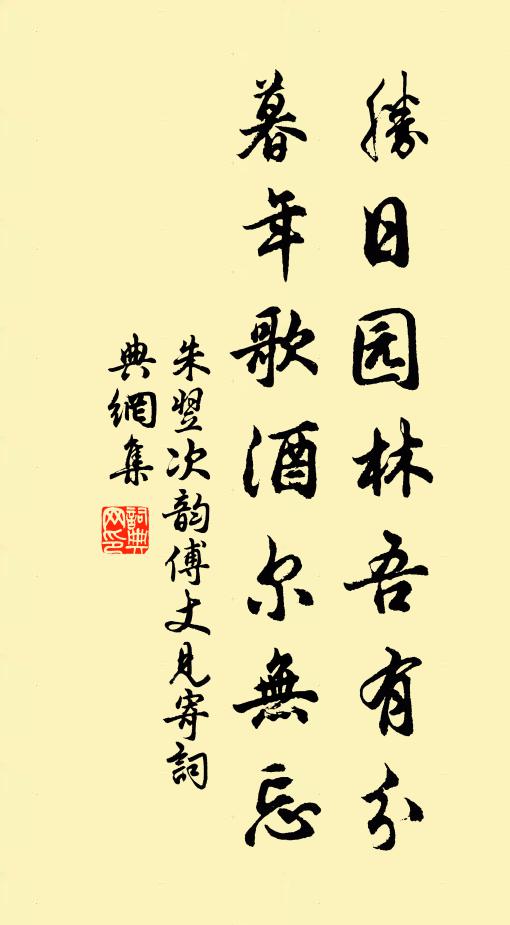 勝日园林吾有分
暮年歌酒尔無忘
朱翌次韵傅丈見寄詞
典網集
詞典网印